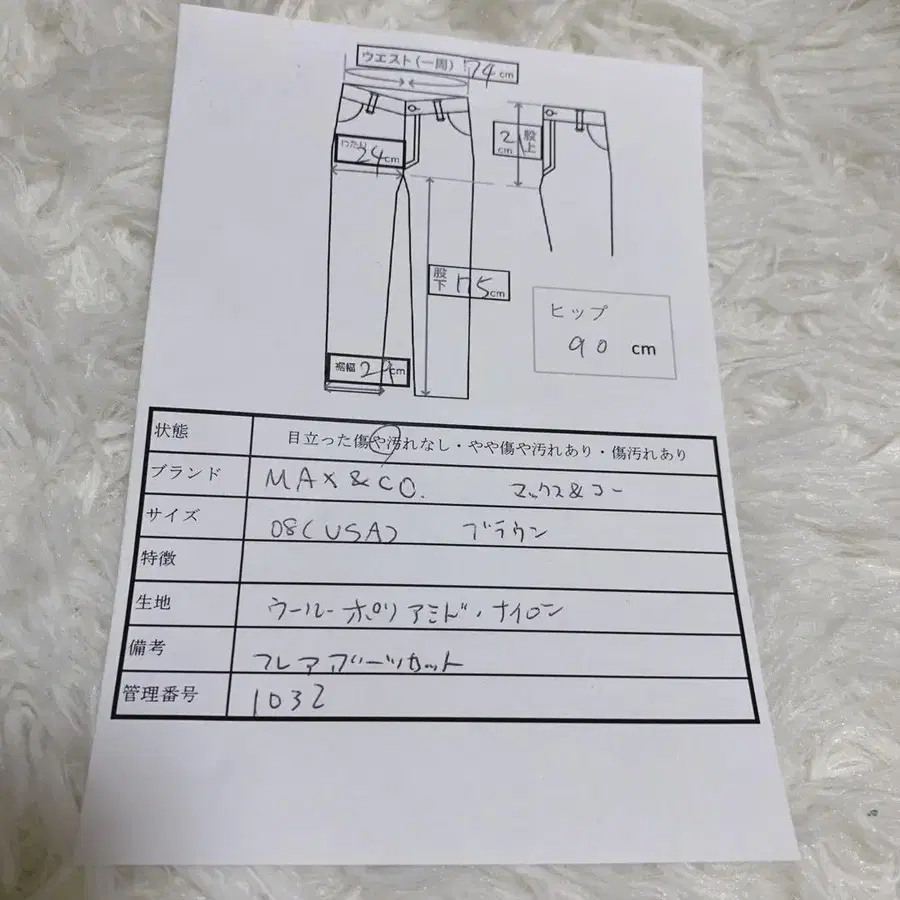 ウエスト(一周) 74cm
わたり 24cm
2 cm 股上
股下 75cm
ヒップ
90 cm
裾幅 24cm
状態 目立った傷や汚れなし・やや傷や汚れあり・傷汚れあり
ブランド MAX&CO. マックス&コー
サイズ 08(USA) ブラウン
特徴
生地 ウール・ポリアミド・ナイロン
備考 フレアブーツカット
管理番号 1032